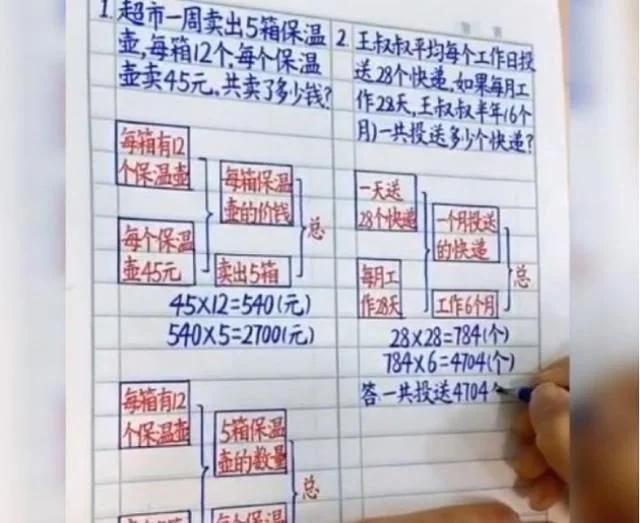 1. 超市一周卖出5箱保温
壶,每箱12个,每个保温
壶卖45元,共卖了多少钱?
每箱有12
个保温壶
每箱保温
壶的价钱
总
每个保温
壶45元
卖出5箱
45×12=540(元)
540×5=2700(元)
每箱有12
个保温壶
5箱保温
壶的数量
总
2. 王叔叔平均每个工作日投
送28个快递,如果每月工
作28天,王叔叔半年(6个
月)一共投送多少个快递?
一天送
28个快递
一个月投送
的快递
总
每月工
作28天
工作6个月
28×28=784(个)
784×6=4704(个)
答:一共投送4704